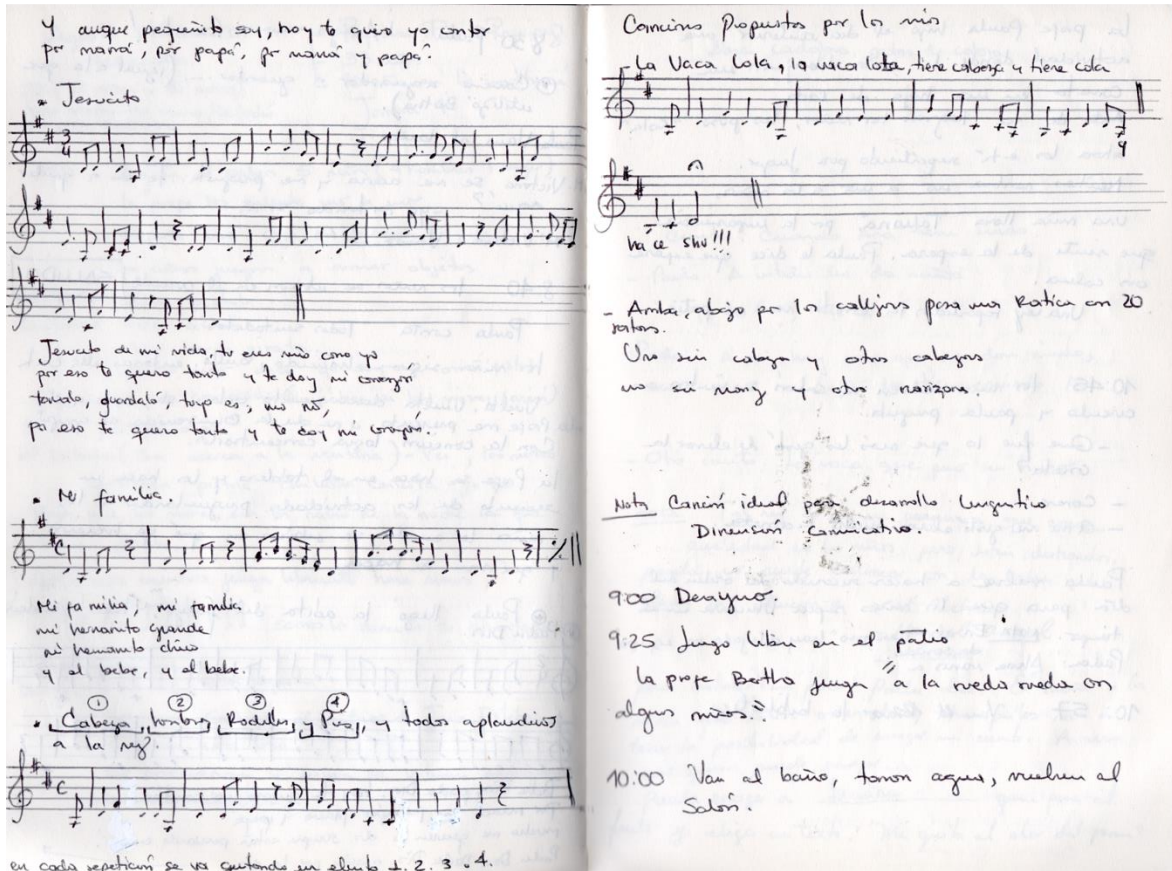 Y aunque pequeñito soy, hoy te quiero yo contar
por mamá, por papá, por mamá y papá.
• Jesucito
3/4
Jesucito de mi vida, tu eres niño como yo
por eso te quiero tanto y te doy mi corazón
tomalo, guardalo, tuyo es, mio nó,
por eso te quiero tanto y te doy mi corazón
• Mi familia.
C
Mi familia, mi familia
mi hermanito grande
mi hermanito chico
y al bebe, y al bebe.
① ② ③ ④
• Cabeza, hombros, Rodillas, Pies, y todos aplaudimos
a la vez.
C
en cada repetición se va quitando un elemto 1. 2. 3 . 4.
Canciones Propuestas por los niños
- La Vaca Lola, la vaca lola, tiene cabeza y tiene cola
ha ce shu!!!
- Arriba abajo por los callejones pasa una Ratica con 20
ratones.
Unos sin cabeza y otros cabezones
unos sin nariz y otros narizones.
Nota Canción ideal para desarrollo linguistico
Dirección
9:00 Desayuno.
9:25 Juego libre en el patio
la profe Bertha juega "a la rueda rueda con
algunos niños."
10:00 Van al baño, toman agua, vuelven al
Salón.